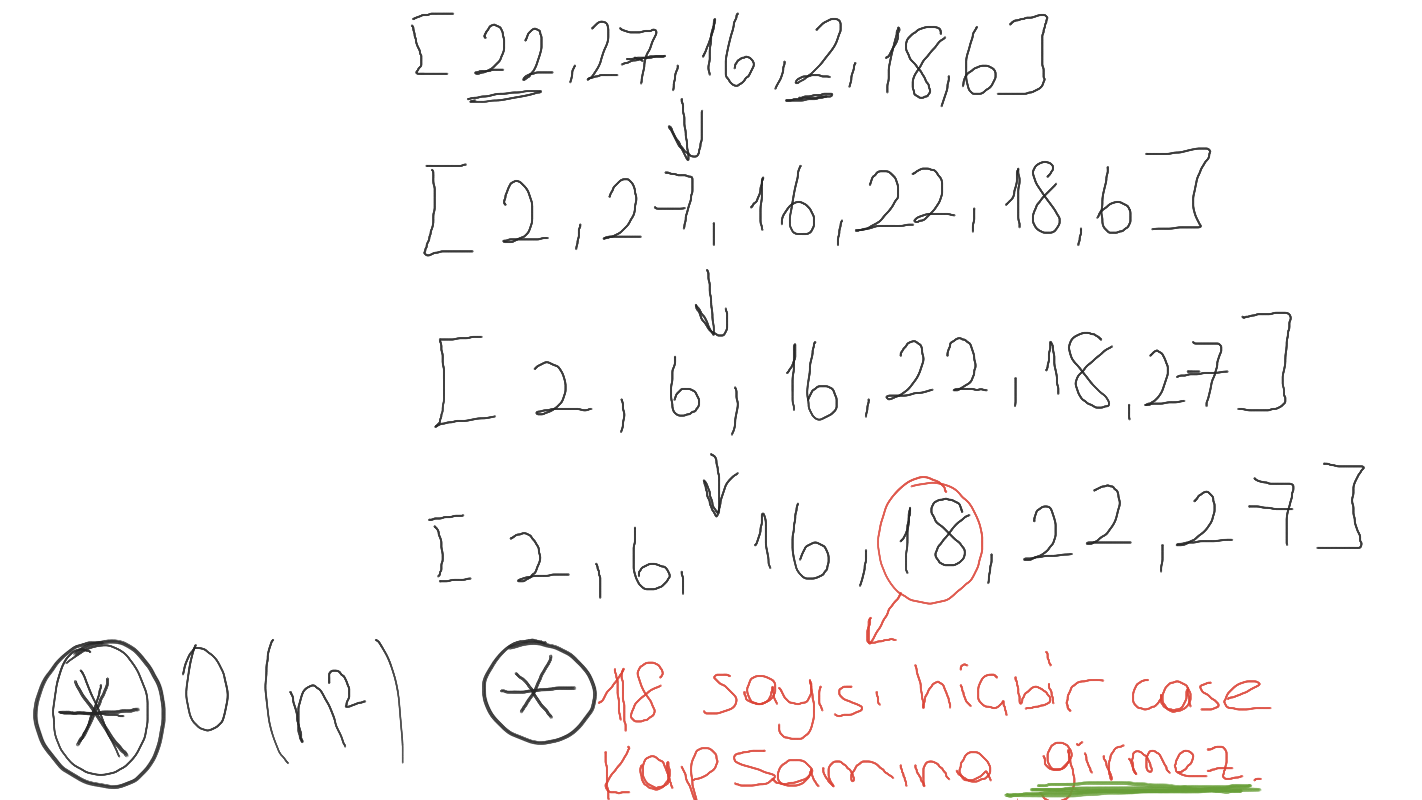 [22,27,16,2,18,6]
[2,27,16,22,18,6]
[2,6,16,22,18,27]
[2,6,16,18,22,27]
* O(n²)
* 18 sayısı hiçbir case
kapsamına girmez.